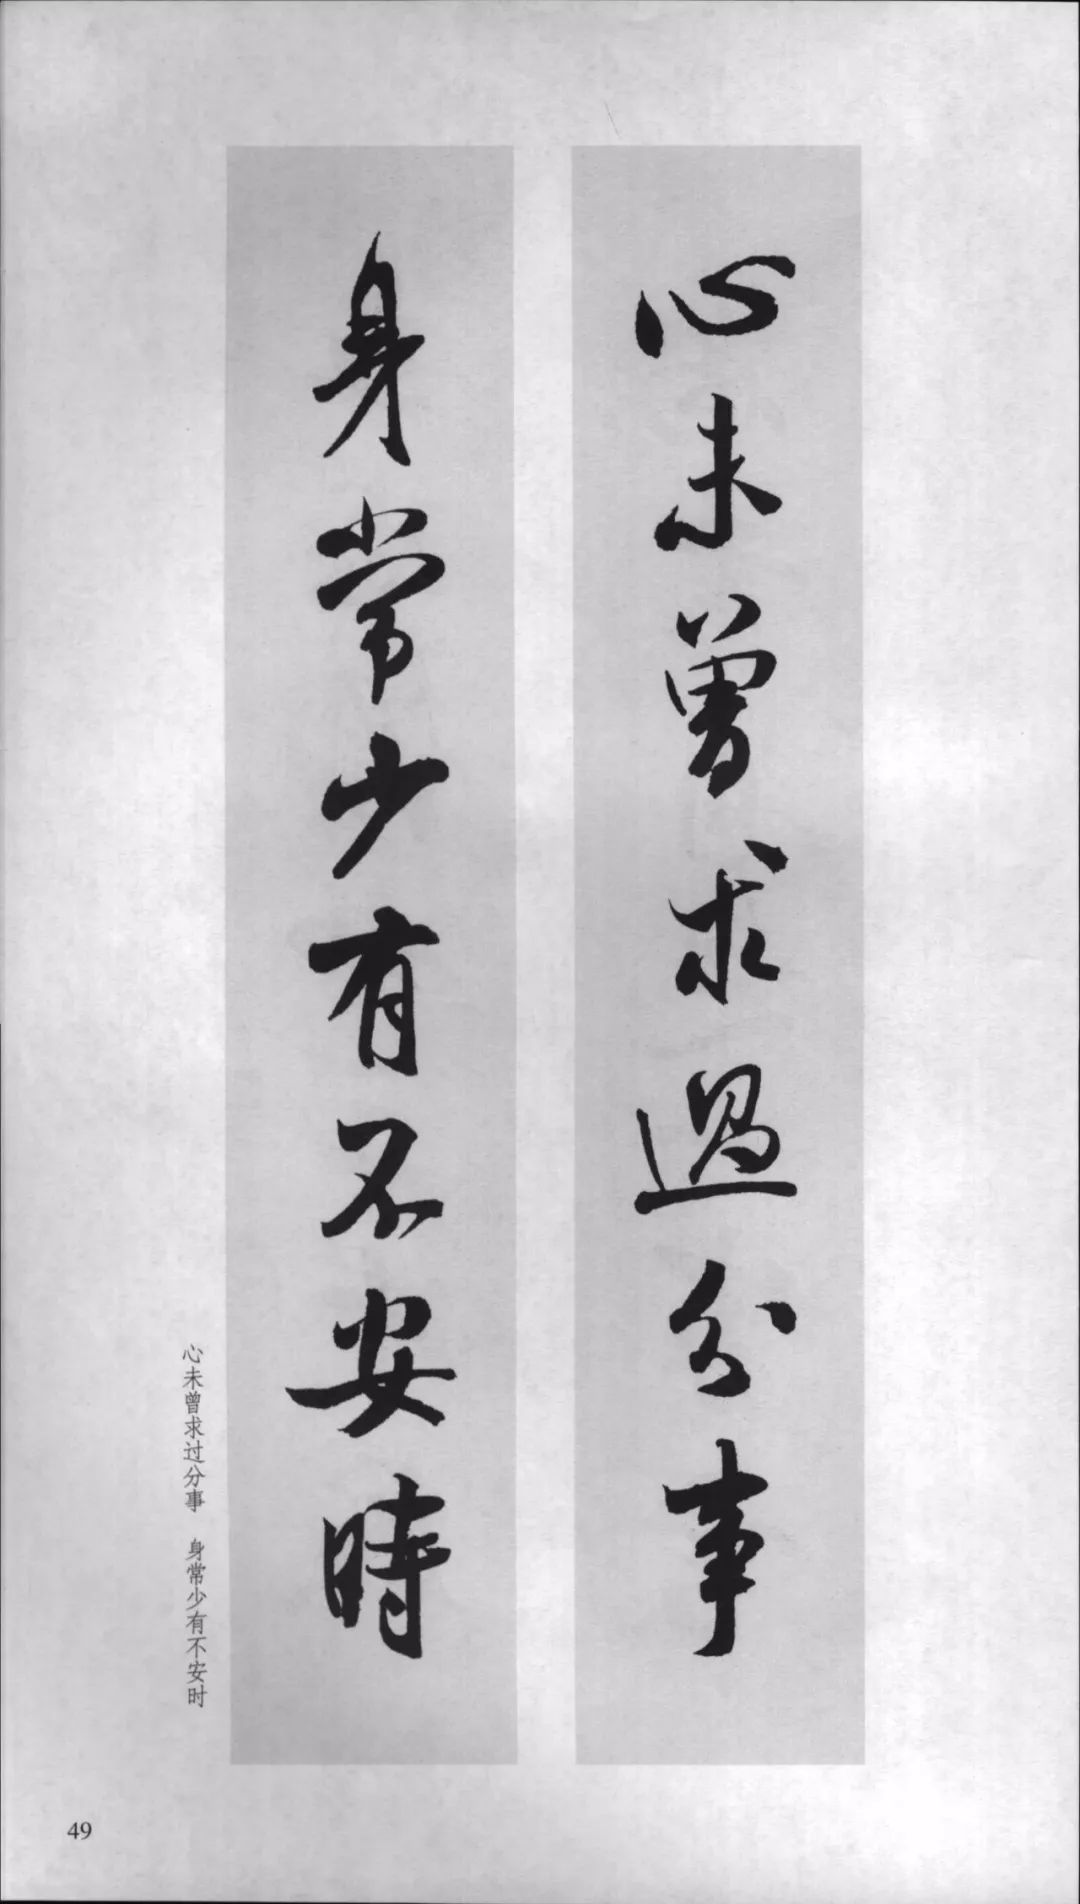 心未曾求過分事
身常少有不安時
心未曾求过分事 身常少有不安时
49